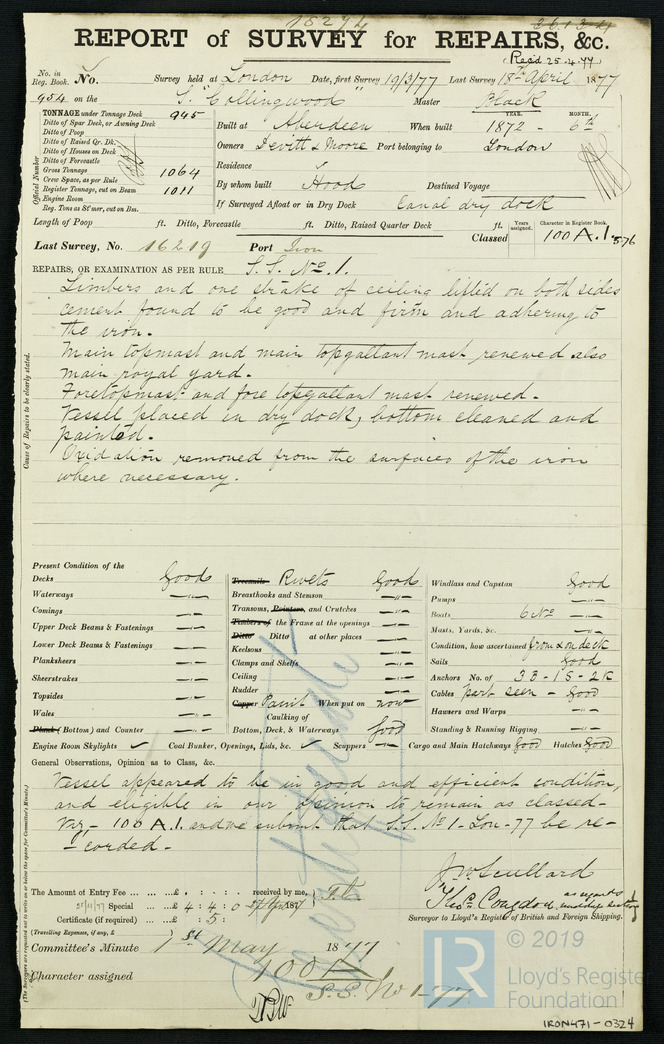 18294
REPORT of SURVEY for REPAIRS, &c.
Rec'd 25.4.77
No. in Reg. Book. No. Survey held at London Date, first Survey 19/3/77 Last Survey 18th April 1877
954 on the S. "Collingwood" Master Black
TONNAGE under Tonnage Deck 945
Ditto of Spar Deck, or Awning Deck
Ditto of Poop
Ditto of Raised Qr. Dk.
Ditto of Houses on Deck
Ditto of Forecastle
Gross Tonnage 1064
Crew Space, as per Rule
Register Tonnage, cut on Beam 1011
Engine Room
Reg. Tons as St'mer, cut on Bm.
Official Number
YEAR. MONTH.
Built at Aberdeen When built 1872 - 6th
Owners Devitt & Moore Port belonging to London
Residence
By whom built Hood Destined Voyage
If Surveyed Afloat or in Dry Dock Canal dry dock
Length of Poop ft. Ditto, Forecastle ft. Ditto, Raised Quarter Deck ft.
Years assigned. Character in Register Book.
Classed 100 A.1. 5.76
Last Survey, No. 16219 Port Iron
REPAIRS, OR EXAMINATION AS PER RULE S.S. No. 1.
Limbers and one strake of ceiling lifted on both sides
cement found to be good and firm and adhering to
the iron.
Main topmast and main topgallant mast renewed also
main royal yard.
Foretopmast and fore topgallant mast renewed.
Vessel placed in dry dock, bottom cleaned and
painted.
Oxidation removed from the surfaces of the iron
where necessary.
Cause of Repairs to be clearly stated.
Present Condition of the
Decks Good
Waterways -"-
Comings -"-
Upper Deck Beams & Fastenings -"-
Lower Deck Beams & Fastenings -"-
Planksheers -"-
Sheerstrakes -"-
Topsides -"-
Wales -"-
Plank (Bottom) and Counter -"-
Engine Room Skylights ✓ Coal Bunker, Openings, Lids, &c. ✓ Scuppers -"- Cargo and Main Hatchways Good Hatches Good
Treenails Rivets Good
Breasthooks and Stemson -"-
Transoms, Pointers, and Crutches -"-
Timbers of the Frame at the openings -"-
Ditto Ditto at other places -"-
Keelsons -"-
Clamps and Shelfs -"-
Ceiling -"-
Rudder -"-
Copper Paint When put on now
Caulking of
Bottom, Deck, & Waterways Good
Windlass and Capstan Good
Pumps -"-
Boats 6 No -"-
Masts, Yards, &c. -"-
Condition, how ascertained from & on deck
Sails Good
Anchors No. of 3B - 1S - 2K
Cables part seen - Good
Hawsers and Warps -"-
Standing & Running Rigging -"-
General Observations, Opinion as to Class, &c.
Vessel appeared to be in good and efficient condition,
and eligible in our opinion to remain as classed -
Viz - 100 A.1. and we submit that S.S. No 1 - Lon - 77 be re-
corded.
The Amount of Entry Fee ... £ . : . : received by me,
Special ... £ 4 : 4 : 0 1877
Certificate (if required) .. £ : 5 :
(Travelling Expenses, if any, £ )
J. W. Scullard
Thos. Congdon
Surveyor to Lloyd's Register of British and Foreign Shipping.
Committee's Minute 1st May 1877
Character assigned 100 A.1
S.S. No 1 - 77.
(The Surveyors are requested not to write on or below the space for Committee's Minute.)
© 2019
LR
Lloyd's Register
Foundation
IRON471-0324